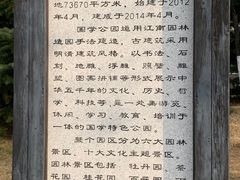 地73670平方米，始建于2012
年4月，建成于2014年4月。
国学公园运用江南园林
造园手法建造，古建筑采用
明清建筑风格，以书法、石
刻、地雕、浮雕、照壁、雕
塑、图案拼铺等形式展示中
华五千年的文化、历史、哲
学、科技等，是一处集游览、
休闲、学习、教育、培训于
一体的国学特色公园。
整个园区分为六大园林
景区、十大文化主题景区。
园林景区包括：牡丹园、茶
花园、桂花园、